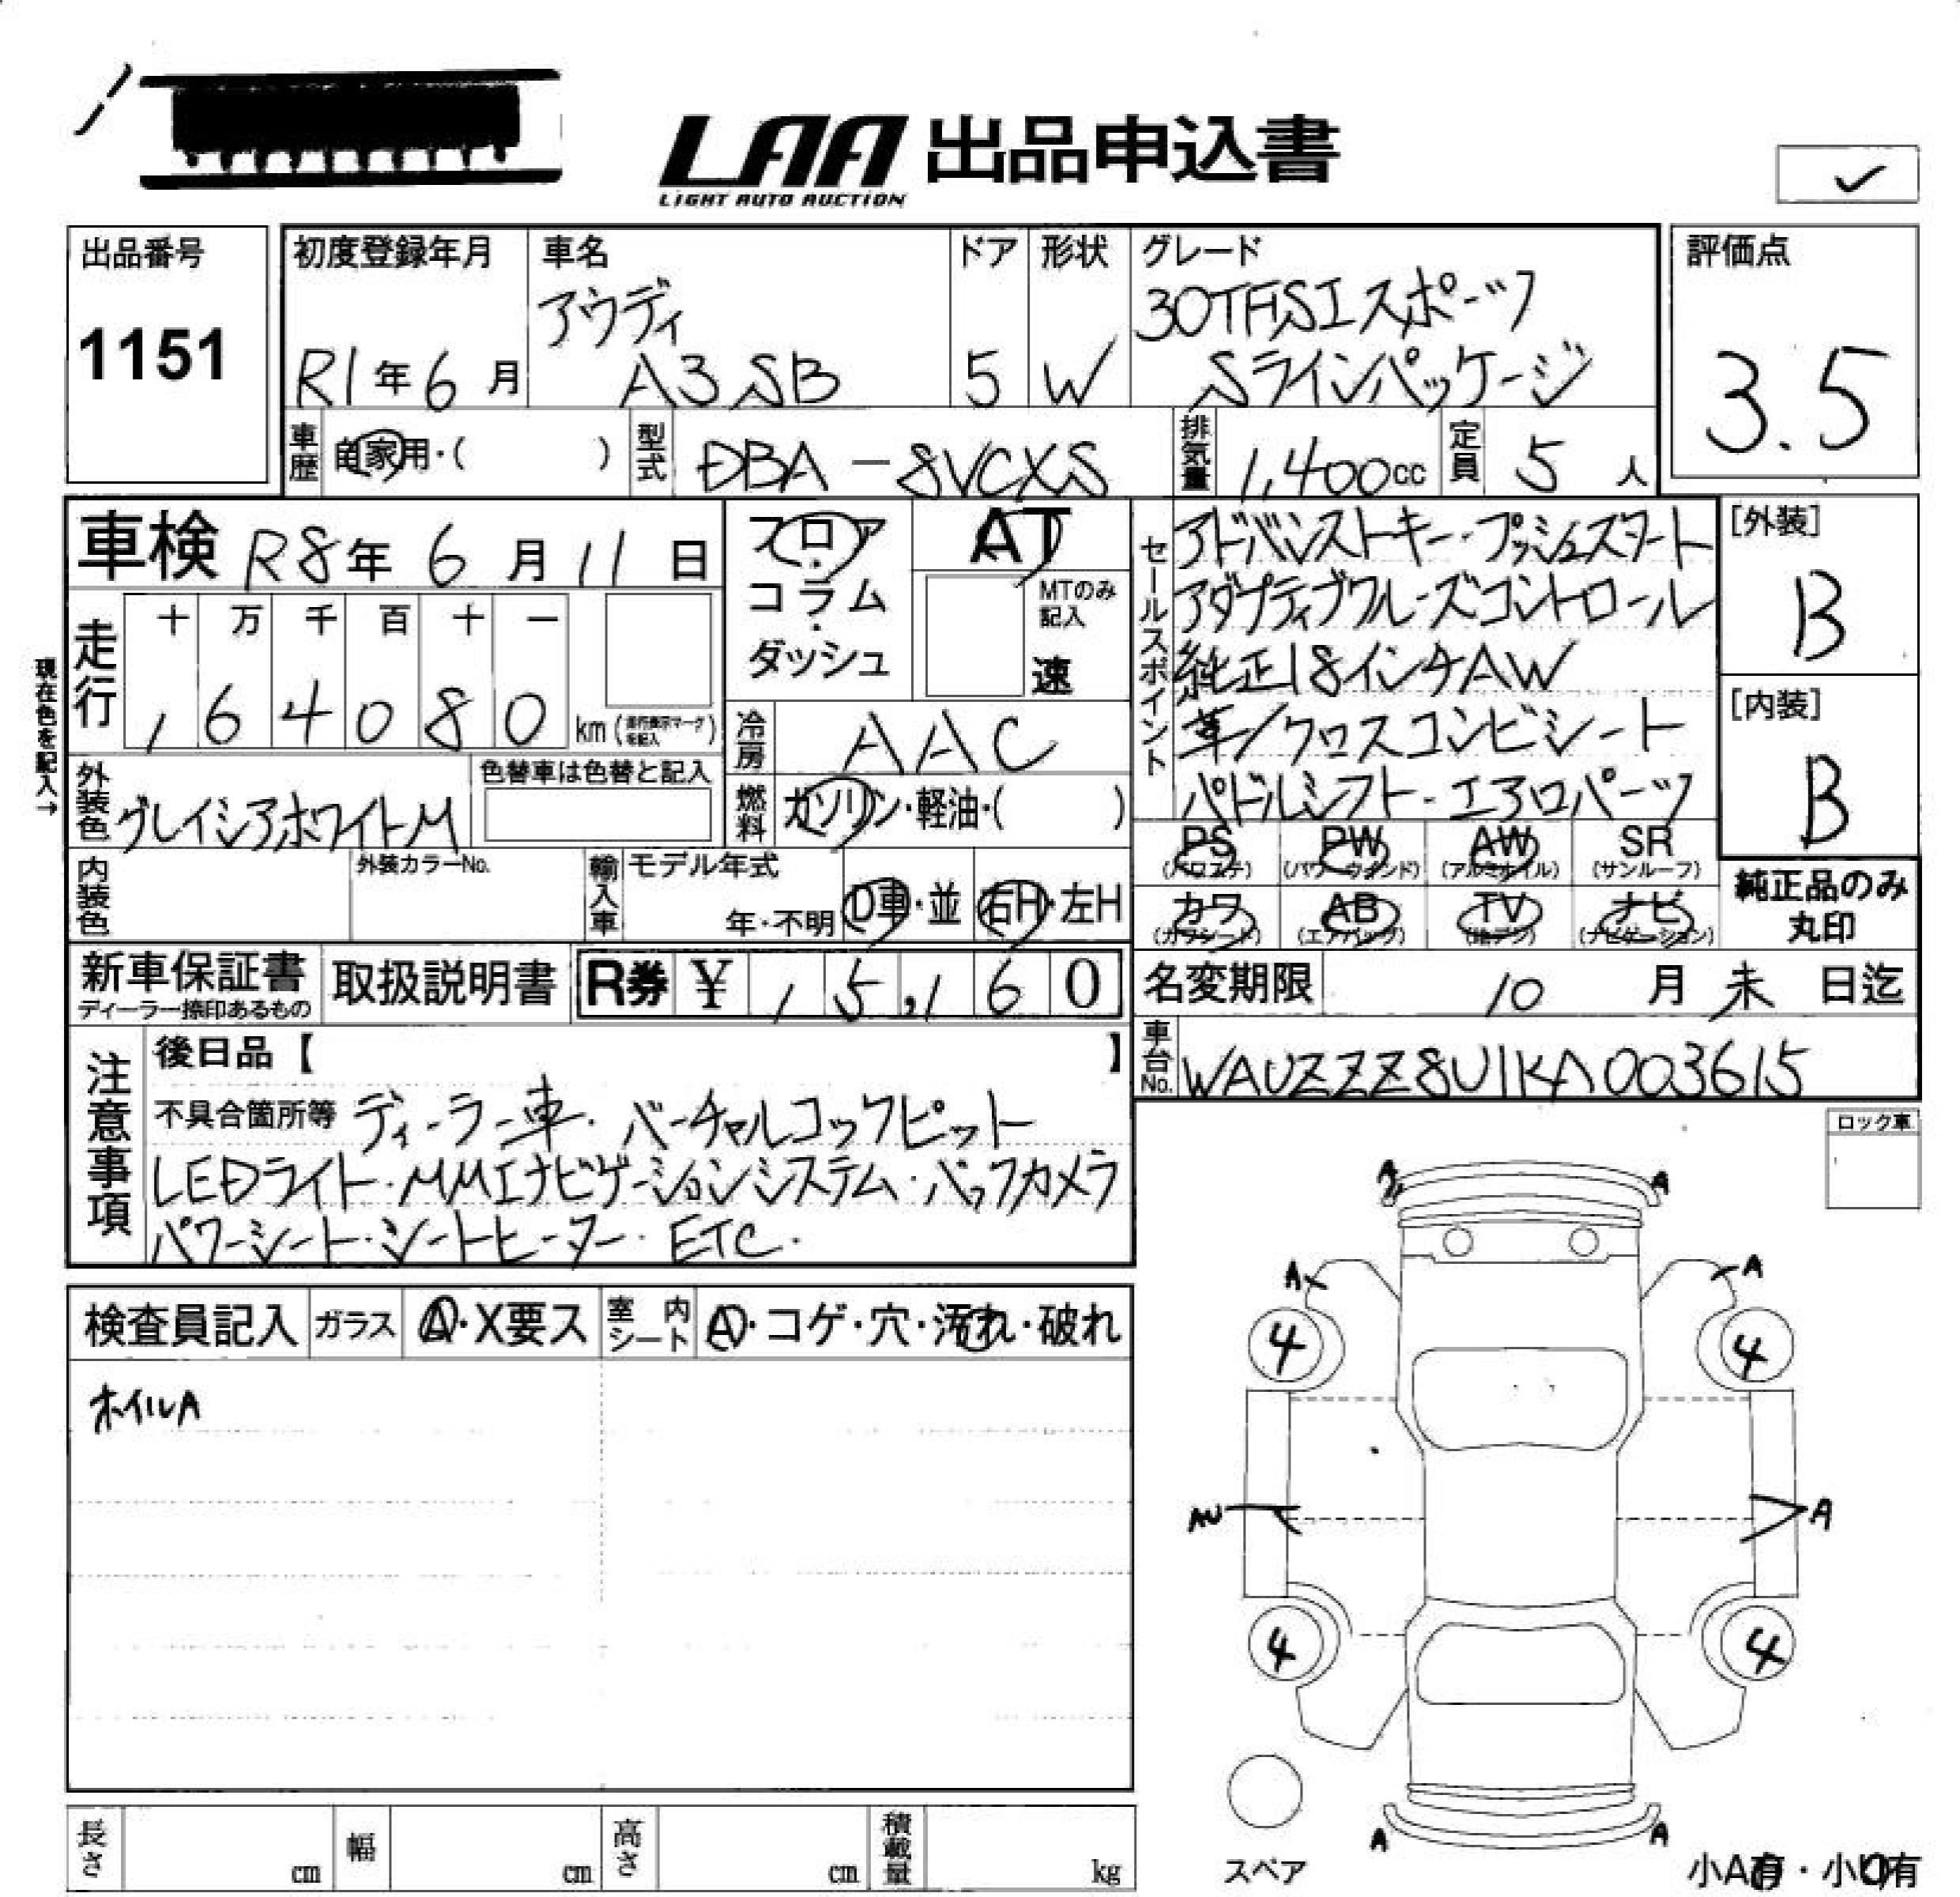 LAA 出品申込書
LIGHT AUTO AUCTION
✓
出品番号
1151
初度登録年月
R1年6月
車名
アウディ
A3 SB
ドア
5
形状
W
グレード
30TFSIスポーツ
Sラインパッケージ
評価点
3.5
車歴
自家用・( )
型式
DBA-8VCXS
排気量
1,400cc
定員
5人
車検 R8年6月11日
フロア・コラム・ダッシュ
AT
MTのみ記入
速
セールスポイント
アドバンストキー・プッシュスタート
アダプティブクルーズコントロール
純正18インチAW
革/クロスコンビシート
パドルシフト・エアロパーツ
[外装]
B
[内装]
B
現在色を記入→
走行
十 万 千 百 十 一
, 6 4 0 8 0 km (走行表示マークを記入)
冷房
AAC
外装色
グレイシアホワイトM
色替車は色替と記入
燃料
ガソリン・軽油・( )
PS (パワステ)
PW (パワーウインド)
AW (アルミホイル)
SR (サンルーフ)
カワ (カワシート)
AB (エアバッグ)
TV (地デジ)
ナビ (ナビゲーション)
純正品のみ
丸印
内装色
外装カラーNo.
輸入車
モデル年式
年・不明
D車・並
右H・左H
新車保証書
ディーラー捺印あるもの
取扱説明書
R券 ¥ , 5,160
名変期限 10月末日迄
車台No.
WAUZZZ8U1KA003615
注意事項
後日品【 】
不具合箇所等 ディーラー車・バーチャルコックピット
LEDライト・MMIナビゲーションシステム・バックカメラ
パワーシート・シートヒーター・ETC・
ロック車
検査員記入
ガラス
A・X要ス
室内シート
A・コゲ・穴・汚れ・破れ
ホイルA
A A
A A
4 4
AU A
4 4
A A
スペア
長さ cm
幅 cm
高さ cm
積載量 kg
小A有・小U有